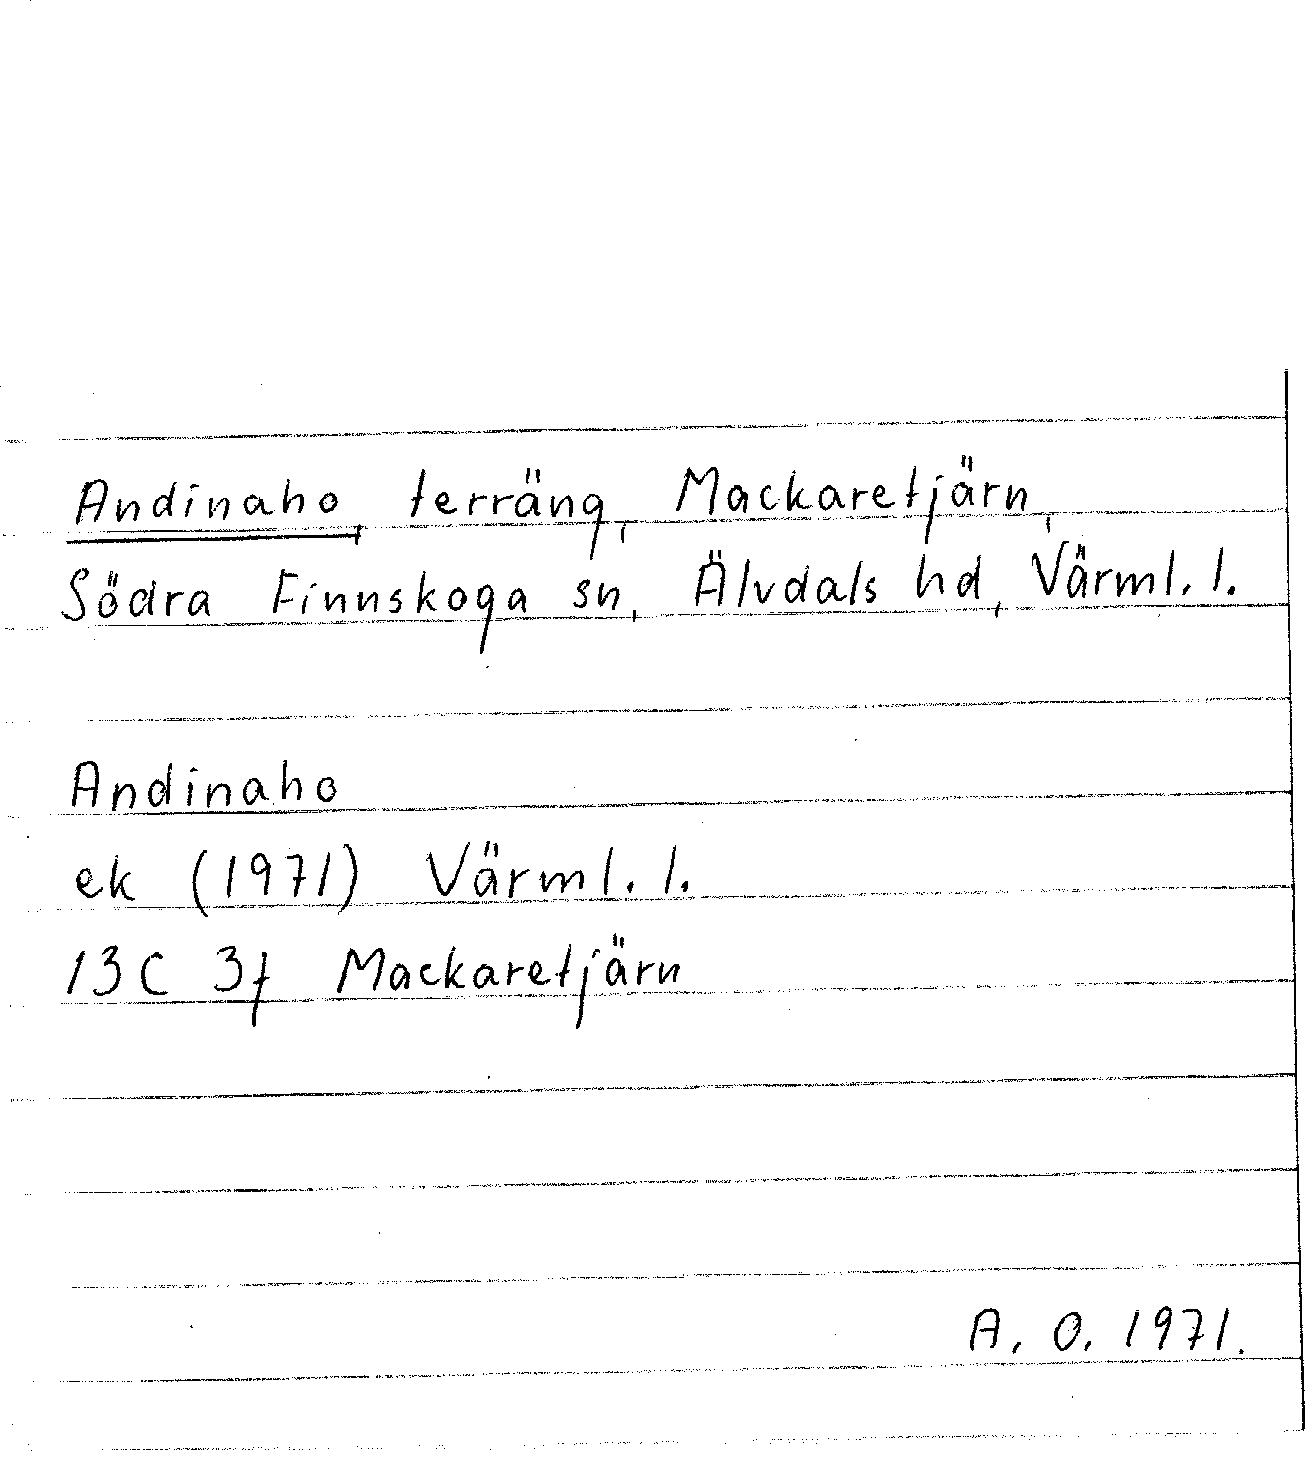 Andinaho, terräng, Mackaretjärn,
Södra Finnskoga sn, Älvdals hd, Värml. l.
Andinaho
ek (1971) Värml. l.
13C 3f Mackaretjärn
A. O. 1971.